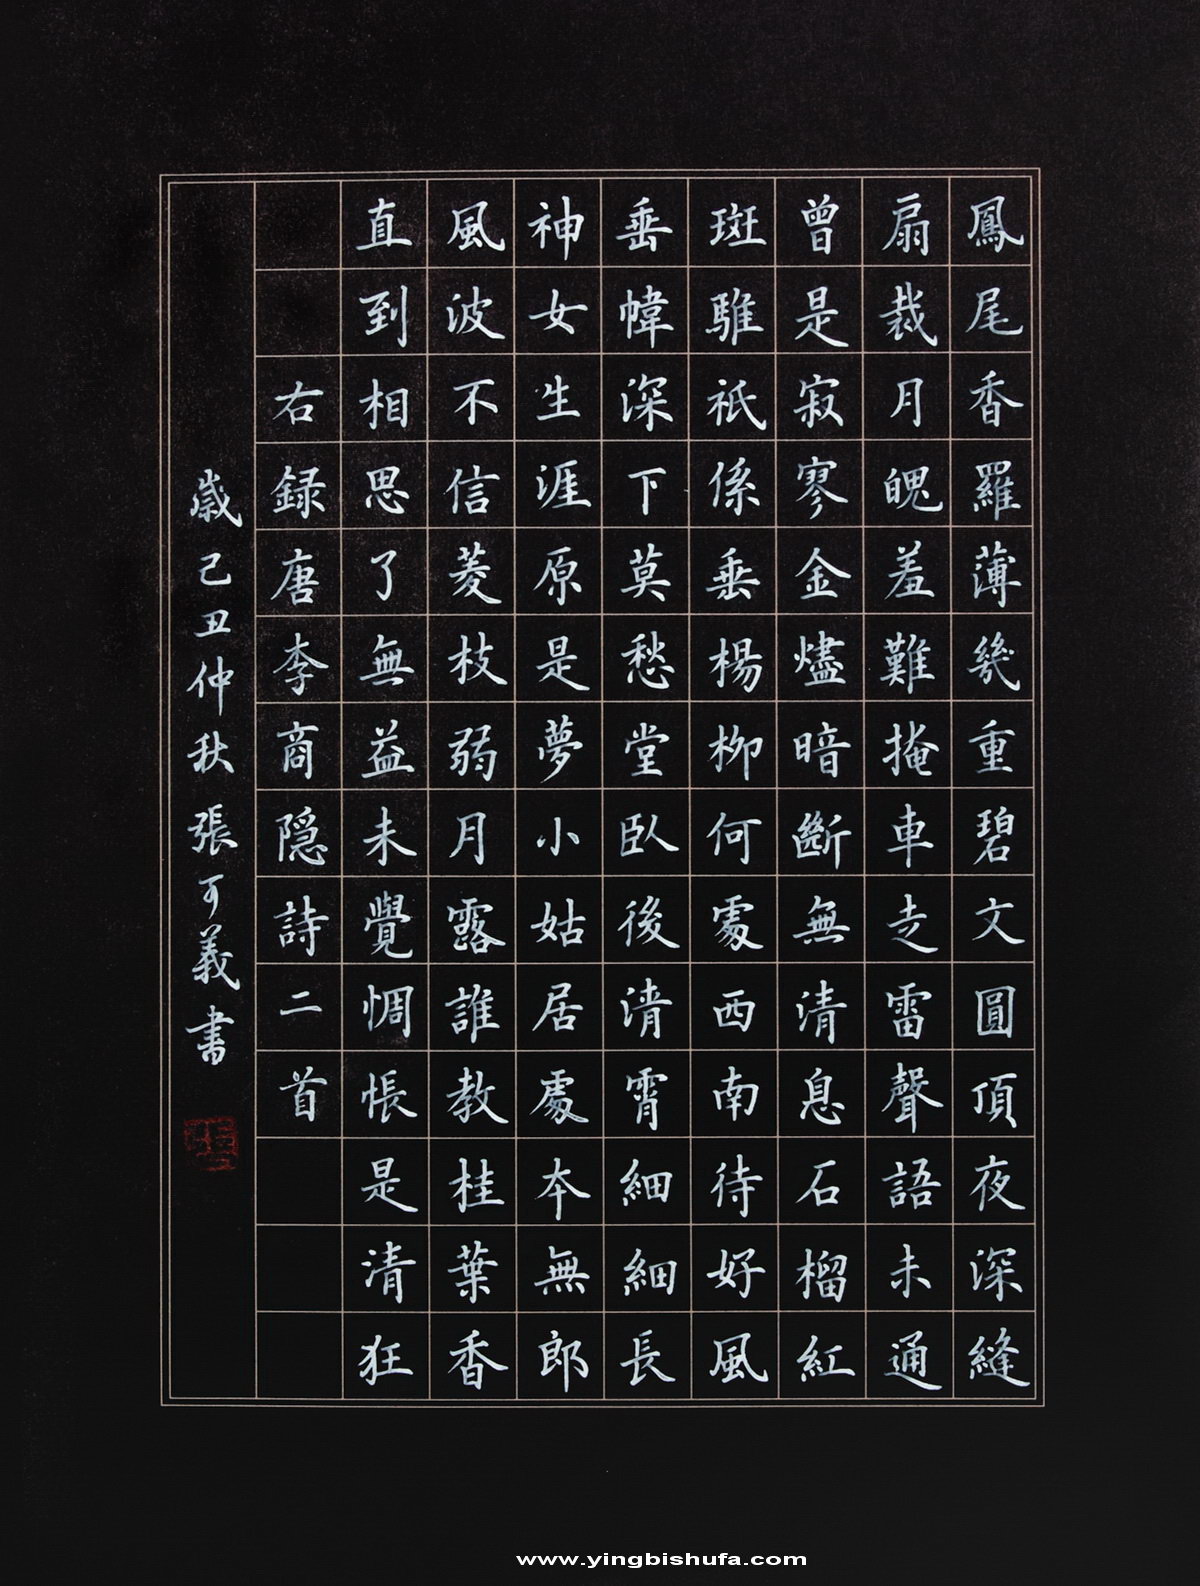 鳳尾香羅薄幾重碧文圓頂夜深縫
扇裁月魄羞難掩車走雷聲語未通
曾是寂寥金燼暗斷無清息石榴紅
斑騅祇係垂楊柳何處西南待好風
垂幃深下莫愁堂臥後清宵細細長
神女生涯原是夢小姑居處本無郎
風波不信菱枝弱月露誰教桂葉香
直到相思了無益未覺惆悵是清狂
右録唐李商隠詩二首
歲己丑仲秋張可義書
www.yingbishufa.com